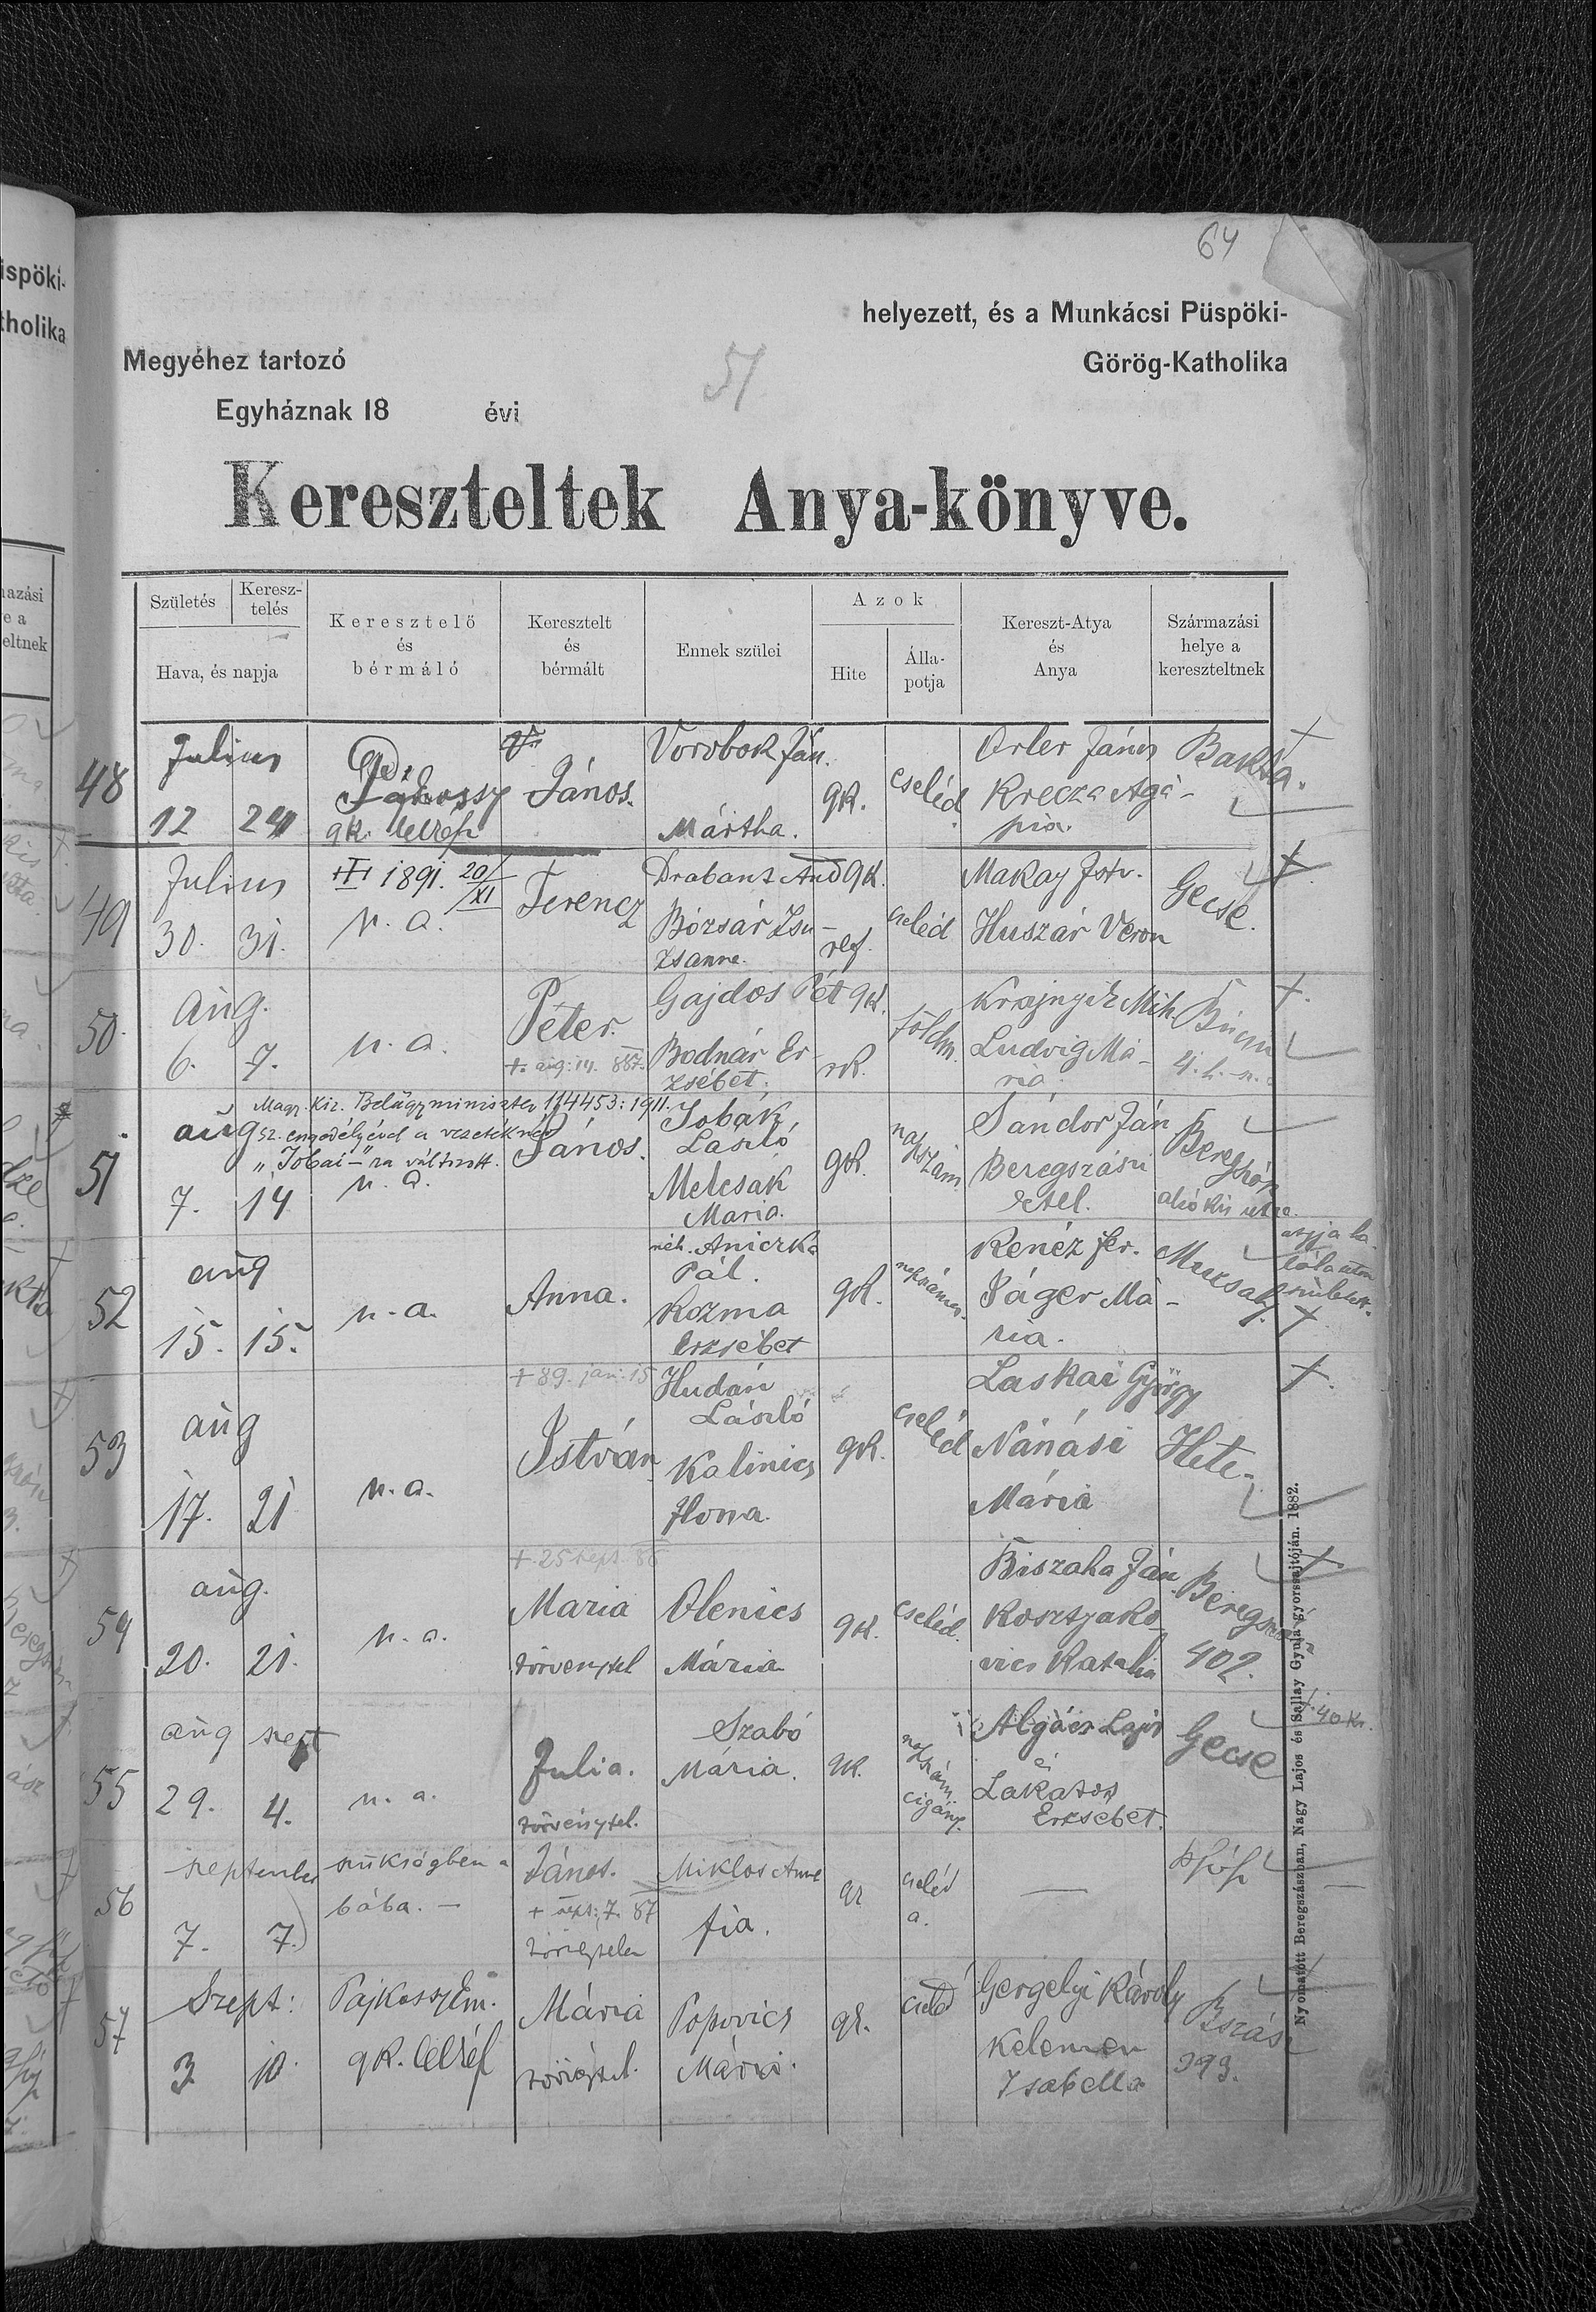 64
helyezett, és a Munkácsi Püspöki-
Megyéhez tartozó
Görög-Katholika
51
Egyháznak 18 évi
Kereszteltek Anya-könyve.
Születés
Keresz-
telés
Hava, és napja
Keresztelő
és
bérmáló
Keresztelt
és
bérmált
Ennek szülei
Azok
Hite
Álla-
potja
Kereszt-Atya
és
Anya
Származási
helye a
kereszteltnek
48
Julius
12 24
gk. lelkész
János.
Vorobok Ján.
Mártha.
gk.
cseléd
Orler János
Krecza Agá-
pia.
Bakta.
49
Julius
30. 31.
1891. 20/XI
u. a.
Ferencz
Drabant And
Bózsár Zsu-
zsanna.
gk.
ref.
cseléd
Makay Istv.
Huszár Veron
Gecse.
50.
aug.
6. 7.
u. a.
Péter.
+ aug: 14. 887.
Gajdos Pét
Bodnár Er-
zsébet.
gk.
rk.
földm.
Krajnyik Mih.
Ludvig Má-
ria.
51
aug
7. 14
Magy. Kir. Belügyminiszter 114453:1911.
sz. engedélyével a vezetéknév
„Jobai-"ra változott.
u. a.
János.
Jobák
László
Melcsák
Maria.
gk.
napszám
Sándor Ján
Beregszászi
Etel.
52
aug
15. 15.
u. a.
Anna.
néh. Aniczka
Pál.
Kozma
Erzsébet
gk.
napszámos.
Kenéz Fer.
Jáger Má-
ria.
Muzsaly.
atyja ha-
lála után
született.
53
aug
17. 21
u. a.
+ 89. jan. 15
István
Hudán
László
Kalinics
Ilona.
gk.
cseléd
Laskai György
Nánási
Mária
Hete-
54
aug.
20. 21.
u. a.
+ 25 sept. 88
Maria
törvénytel
Olenics
Mária
gk.
cseléd.
Biszaha Ján
Kosztyako
vics Katalin
Beregszász
402.
55
aug szept
29. 4.
u. a.
Julia.
törvénytel.
Szabó
Mária.
gk.
napszám.
cigány.
Algács Lajos
é
Lakatos
Erzsebet.
Gecse
+. 40 kr.
56
szeptember
7. 7.
szükségben a
bába. -
János.
+ sept: 7. 87
Miklos Anna
fia.
gk
cseléd
a.
—
57
Szept:
3. 10.
Pajkossy Em.
gk. lelkész
Mária
Popovics
Mária.
gk.
cseléd
Gergelyi Károly
Kelemen
Isabella
Bszász
393.
Nyomatott Beregszászban, Nagy Lajos és Sallay Gyula gyorssajtóján. 1882.